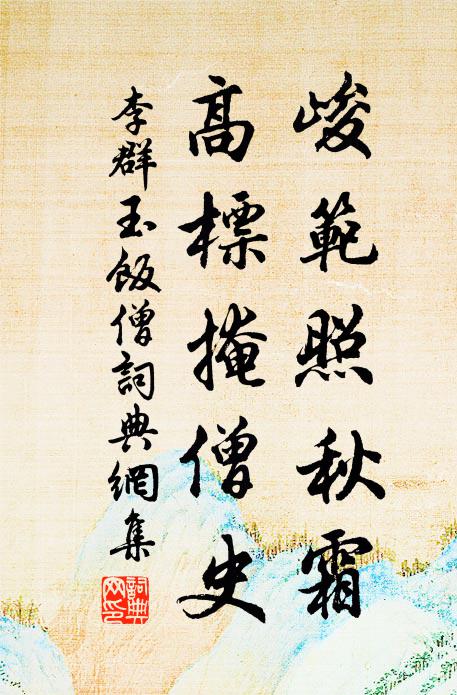 峻範照秋霜
高標掩僧史
李群玉飯僧詞典網集
詞典網印